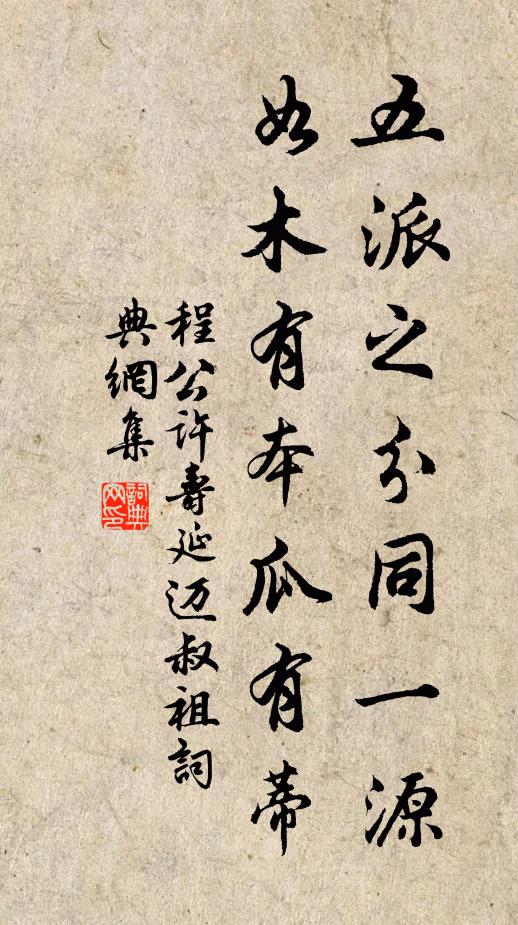 五派之分同一源
如木有本瓜有蒂
程公许壽延迈叔祖詞
典網集
詞典
网印